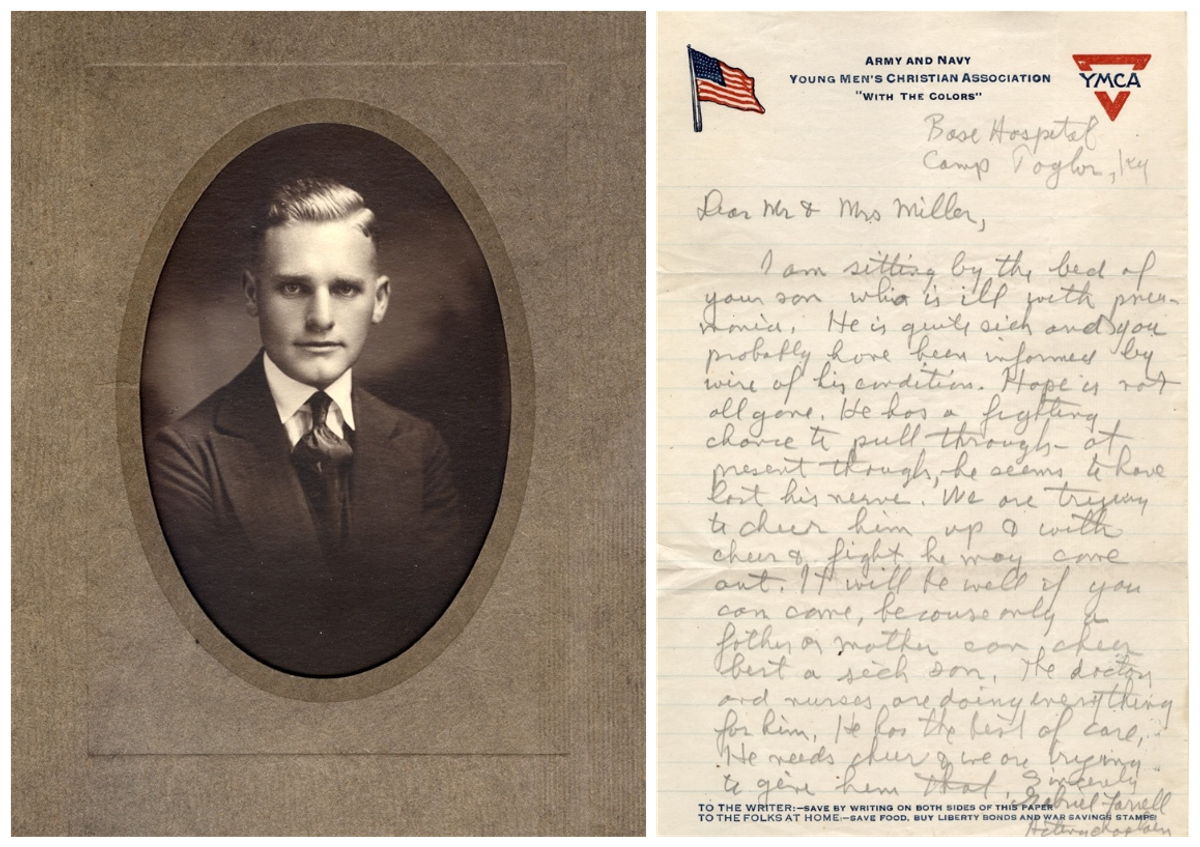 ARMY AND NAVY
YOUNG MEN'S CHRISTIAN ASSOCIATION
"WITH THE COLORS"
YMCA
Base Hospital
Camp Taylor, Ky
Dear Mr & Mrs Miller,
I am sitting by the bed of
your son who is ill with pneu-
monia. He is quite sick and you
probably have been informed by
wire of his condition. Hope is not
all gone. He has a fighting
chance to pull through - at
present though, he seems to have
lost his nerve. We are trying
to cheer him up & with
cheer & fight he may come
out. It will be well if you
can come, because only a
father or mother can cheer
best a sick son. The doctors
and nurses are doing everything
for him. He has the best of care.
He needs cheer & we are trying
to give him that. Sincerely
Gabriel Farrell
Acting chaplain
TO THE WRITER:—SAVE BY WRITING ON BOTH SIDES OF THIS PAPER
TO THE FOLKS AT HOME:—SAVE FOOD, BUY LIBERTY BONDS AND WAR SAVINGS STAMPS